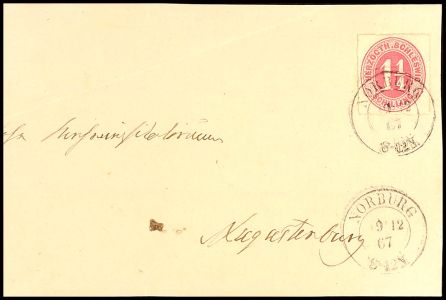 HERZOGTH. SCHLESWIG
1¼
SCHILLING
NORBURG
67
8-12V.
Augustenburg
NORBURG
9 12
67
8-12V.